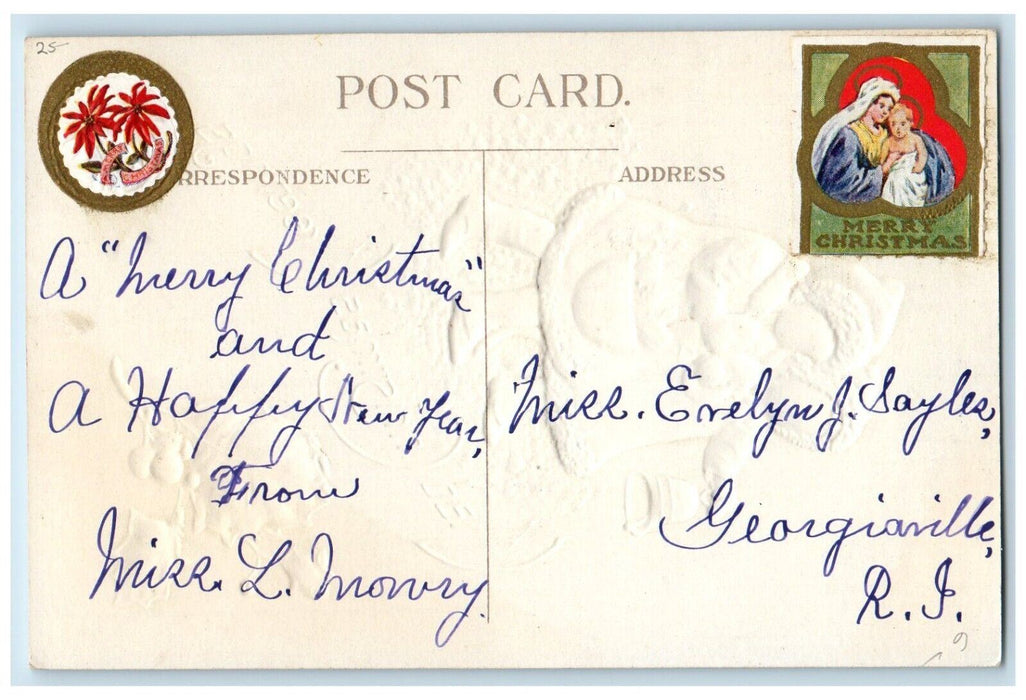 25
POST CARD.
RRESPONDENCE
ADDRESS
MERRY
CHRISTMAS
A "Merry Christmas"
and
A Happy New Year,
From
Miss. L. Mowry.
Miss. Evelyn J. Sayles,
Georgiaville,
R.I.